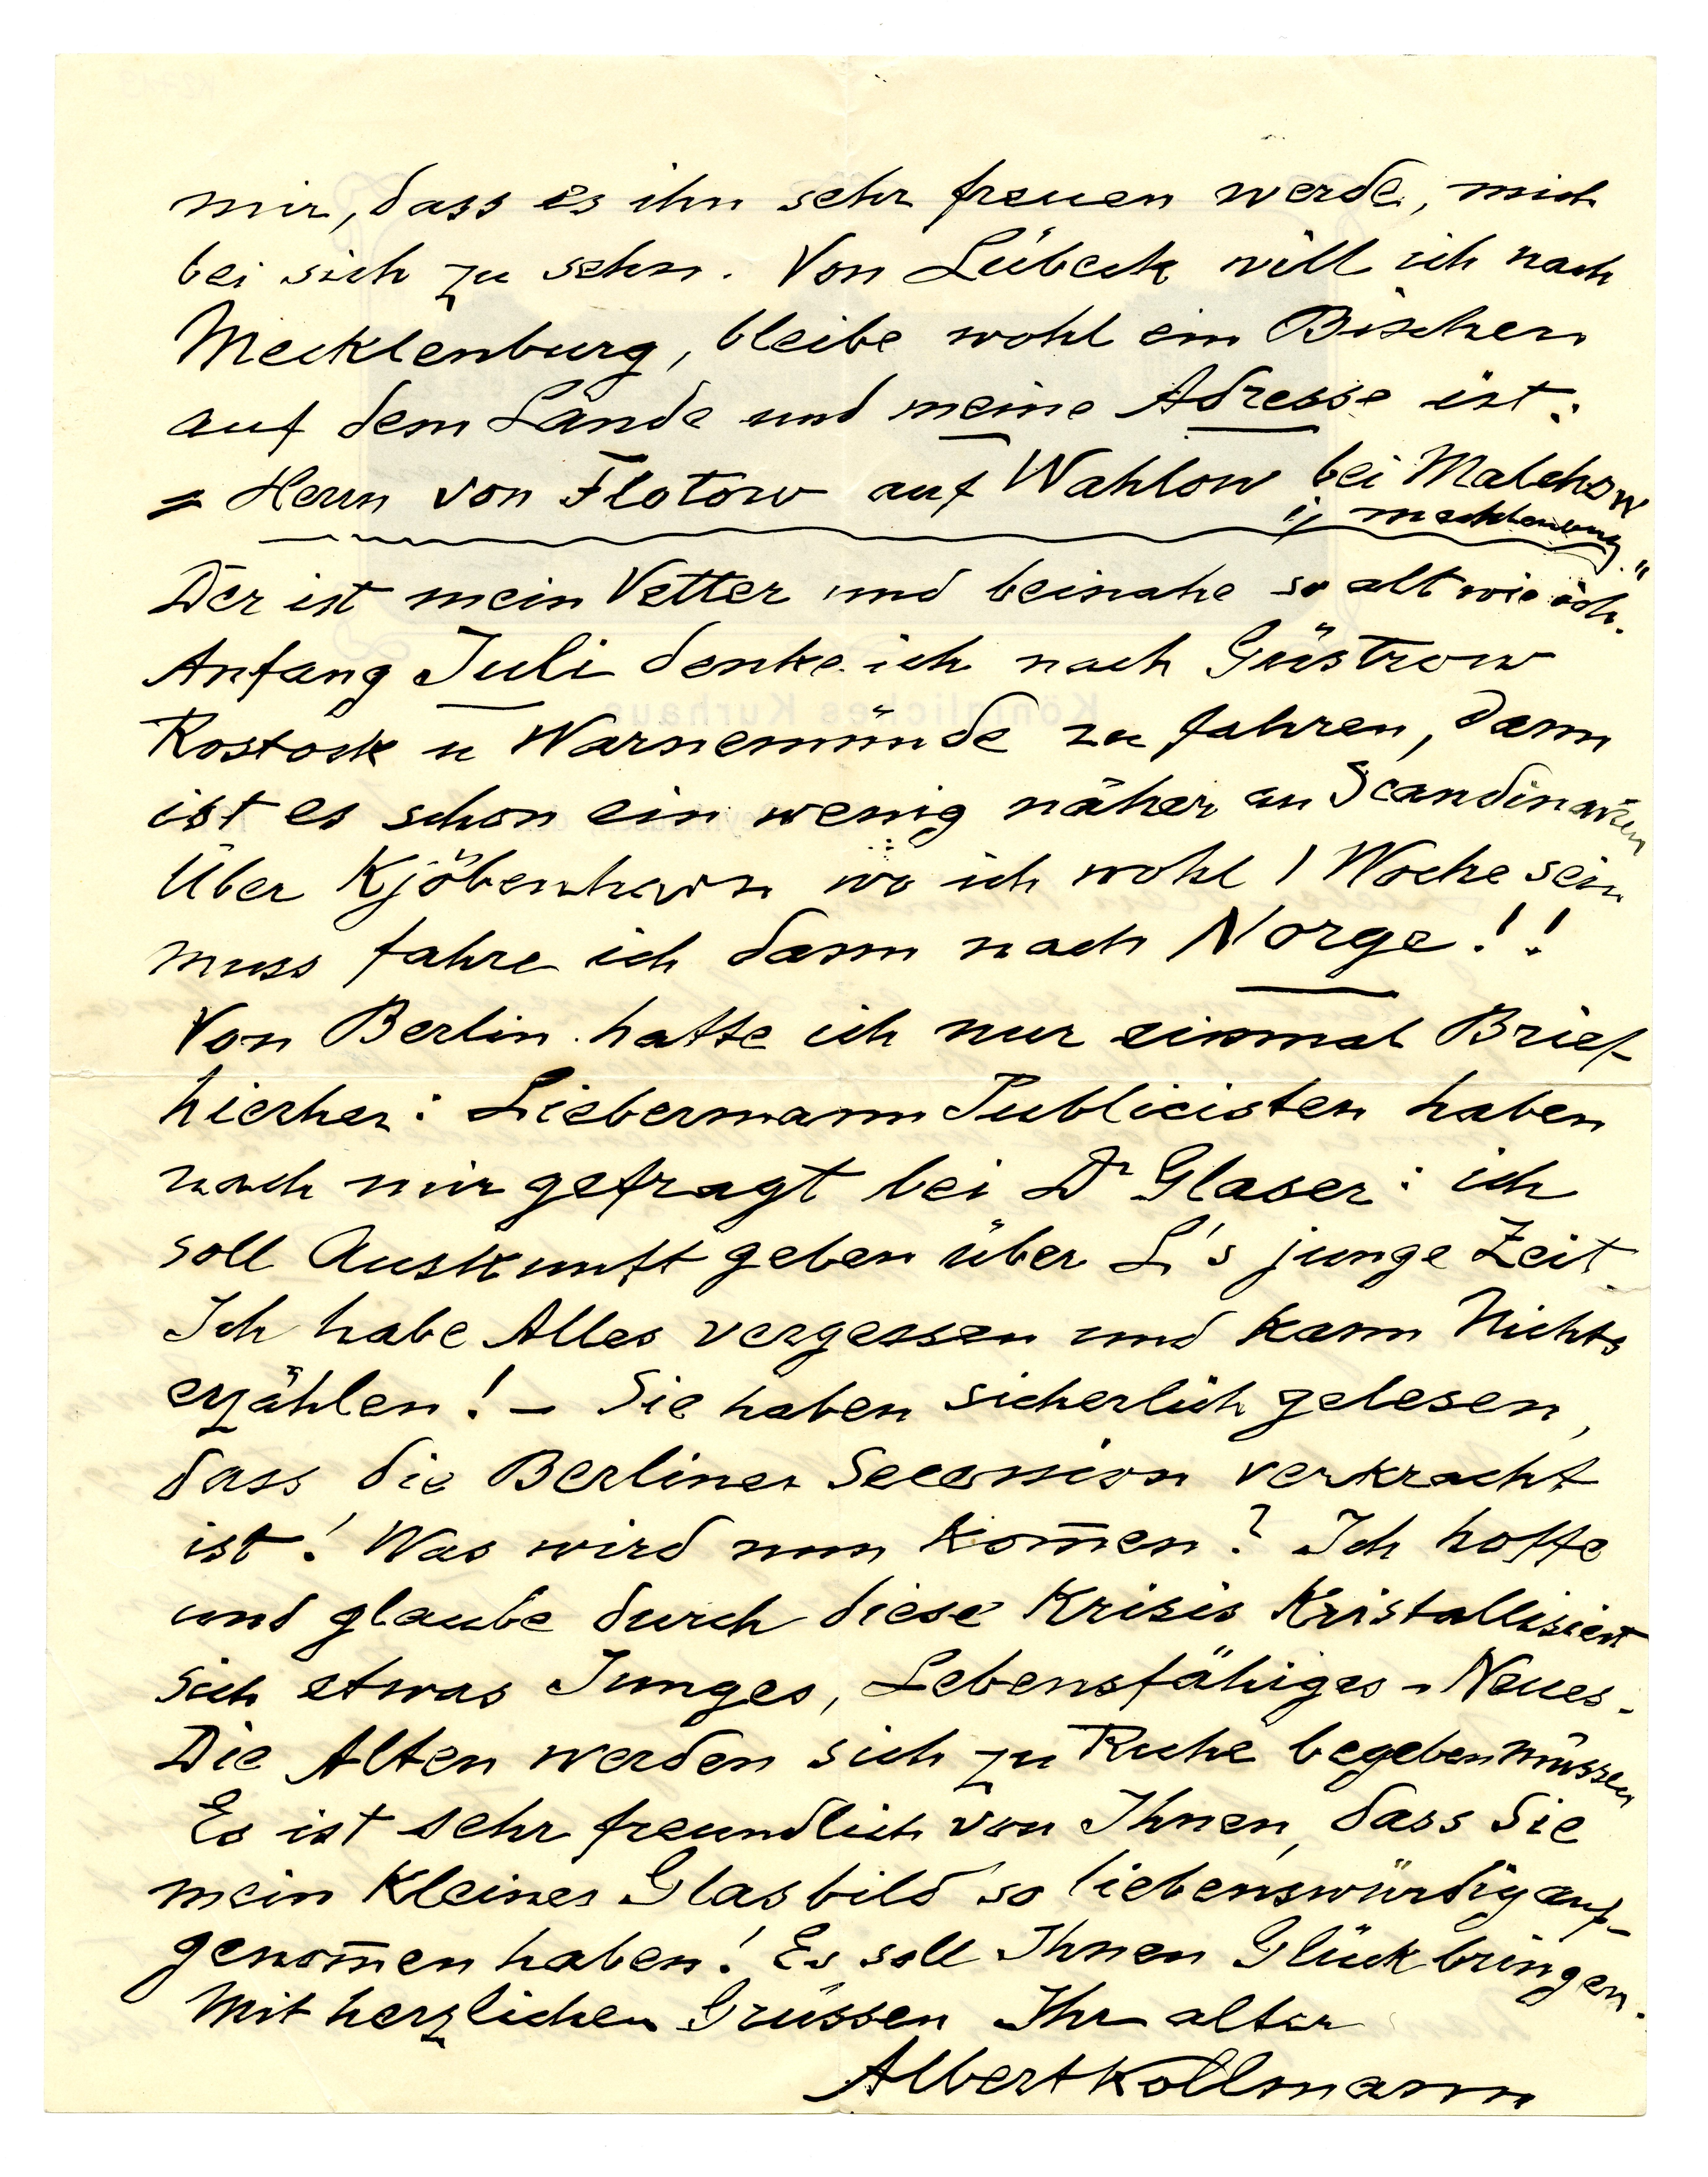 mir, dass es ihn sehr freuen werde, mich
bei sich zu sehn. Von Lübeck will ich nach
Mecklenburg, bleibe wohl ein Bischen
auf dem Lande und meine Adresse ist:
= Herrn von Flotow auf Wahlow bei Malchow
i/ Mecklenburg."
Der ist mein Vetter und beinahe so alt wie ich.
Anfang Juli denke ich nach Güstrow
Rostock u Warnemünde zu fahren, dann
ist es schon ein wenig näher an Scandinavien
Über Kjöbenhavn wo ich wohl 1 Woche sein
muss fahre ich dann nach Norge!!
Von Berlin hatte ich nur einmal Brief
hierher: Liebermann Publicisten haben
nach mir gefragt bei Dr Glaser: ich
soll Auskunft geben über L's junge Zeit.
Ich habe Alles vergessen und kann Nichts
erzählen! – Sie haben sicherlich gelesen,
dass die Berliner Secession verkracht
ist! Was wird nun kom̄en? Ich hoffe
und glaube durch diese Krisis Kristallisiert
sich etwas Junges, Lebensfähiges - Neues.
Die Alten werden sich zu Ruhe begeben müssen
Es ist sehr freundlich von Ihnen, dass Sie
mein kleines Glasbild so liebenswürdig auf-
genom̄en haben! Es soll Ihnen Glück bringen.
Mit herzlichen Grüssen Ihr alter
Albert Kollmann
Königliches Kurhaus